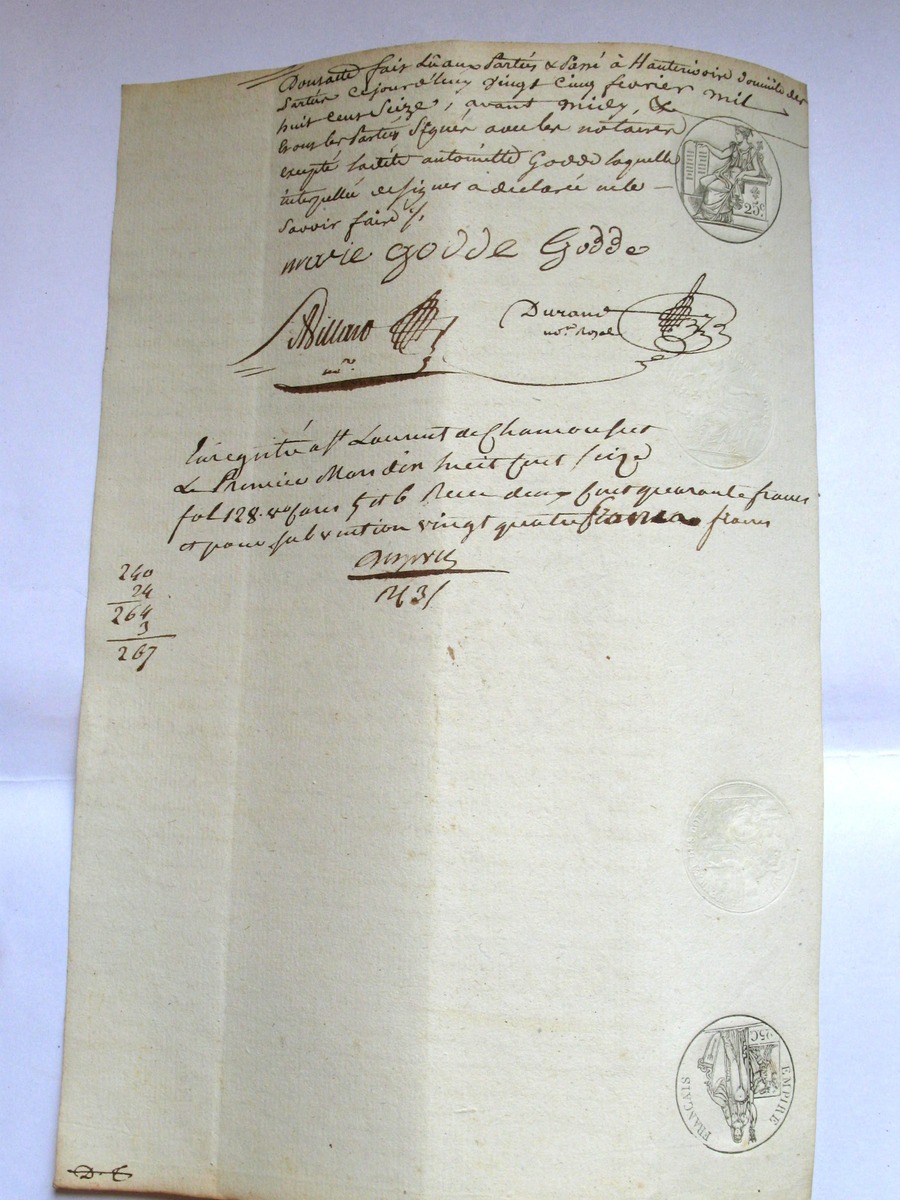 Dont acte fait Lû aux Parties & Passé à Hauterivoire domicile des
Parties Cejourd'huy vingt Cinq fevrier mil
huit Cent Seize, avant midy, &
les Parties Signé avec les notaires
excepté ladite antoinette Godde laquelle
interpellée de signer a déclaré ne le
Savoir faire /.
marie godde Godde
Durand
no.re Royal
no.re
Enregistré a St Laurent de Chamousset
Le Premier Mars dix huit Cent Seize
fol 128 vo Cases 5 et 6 Recu deux Cent quarante francs
et pour subvention vingt quatre francs
240
24
264
3
267
25c.
25C.
EMPIRE
FRANÇAIS